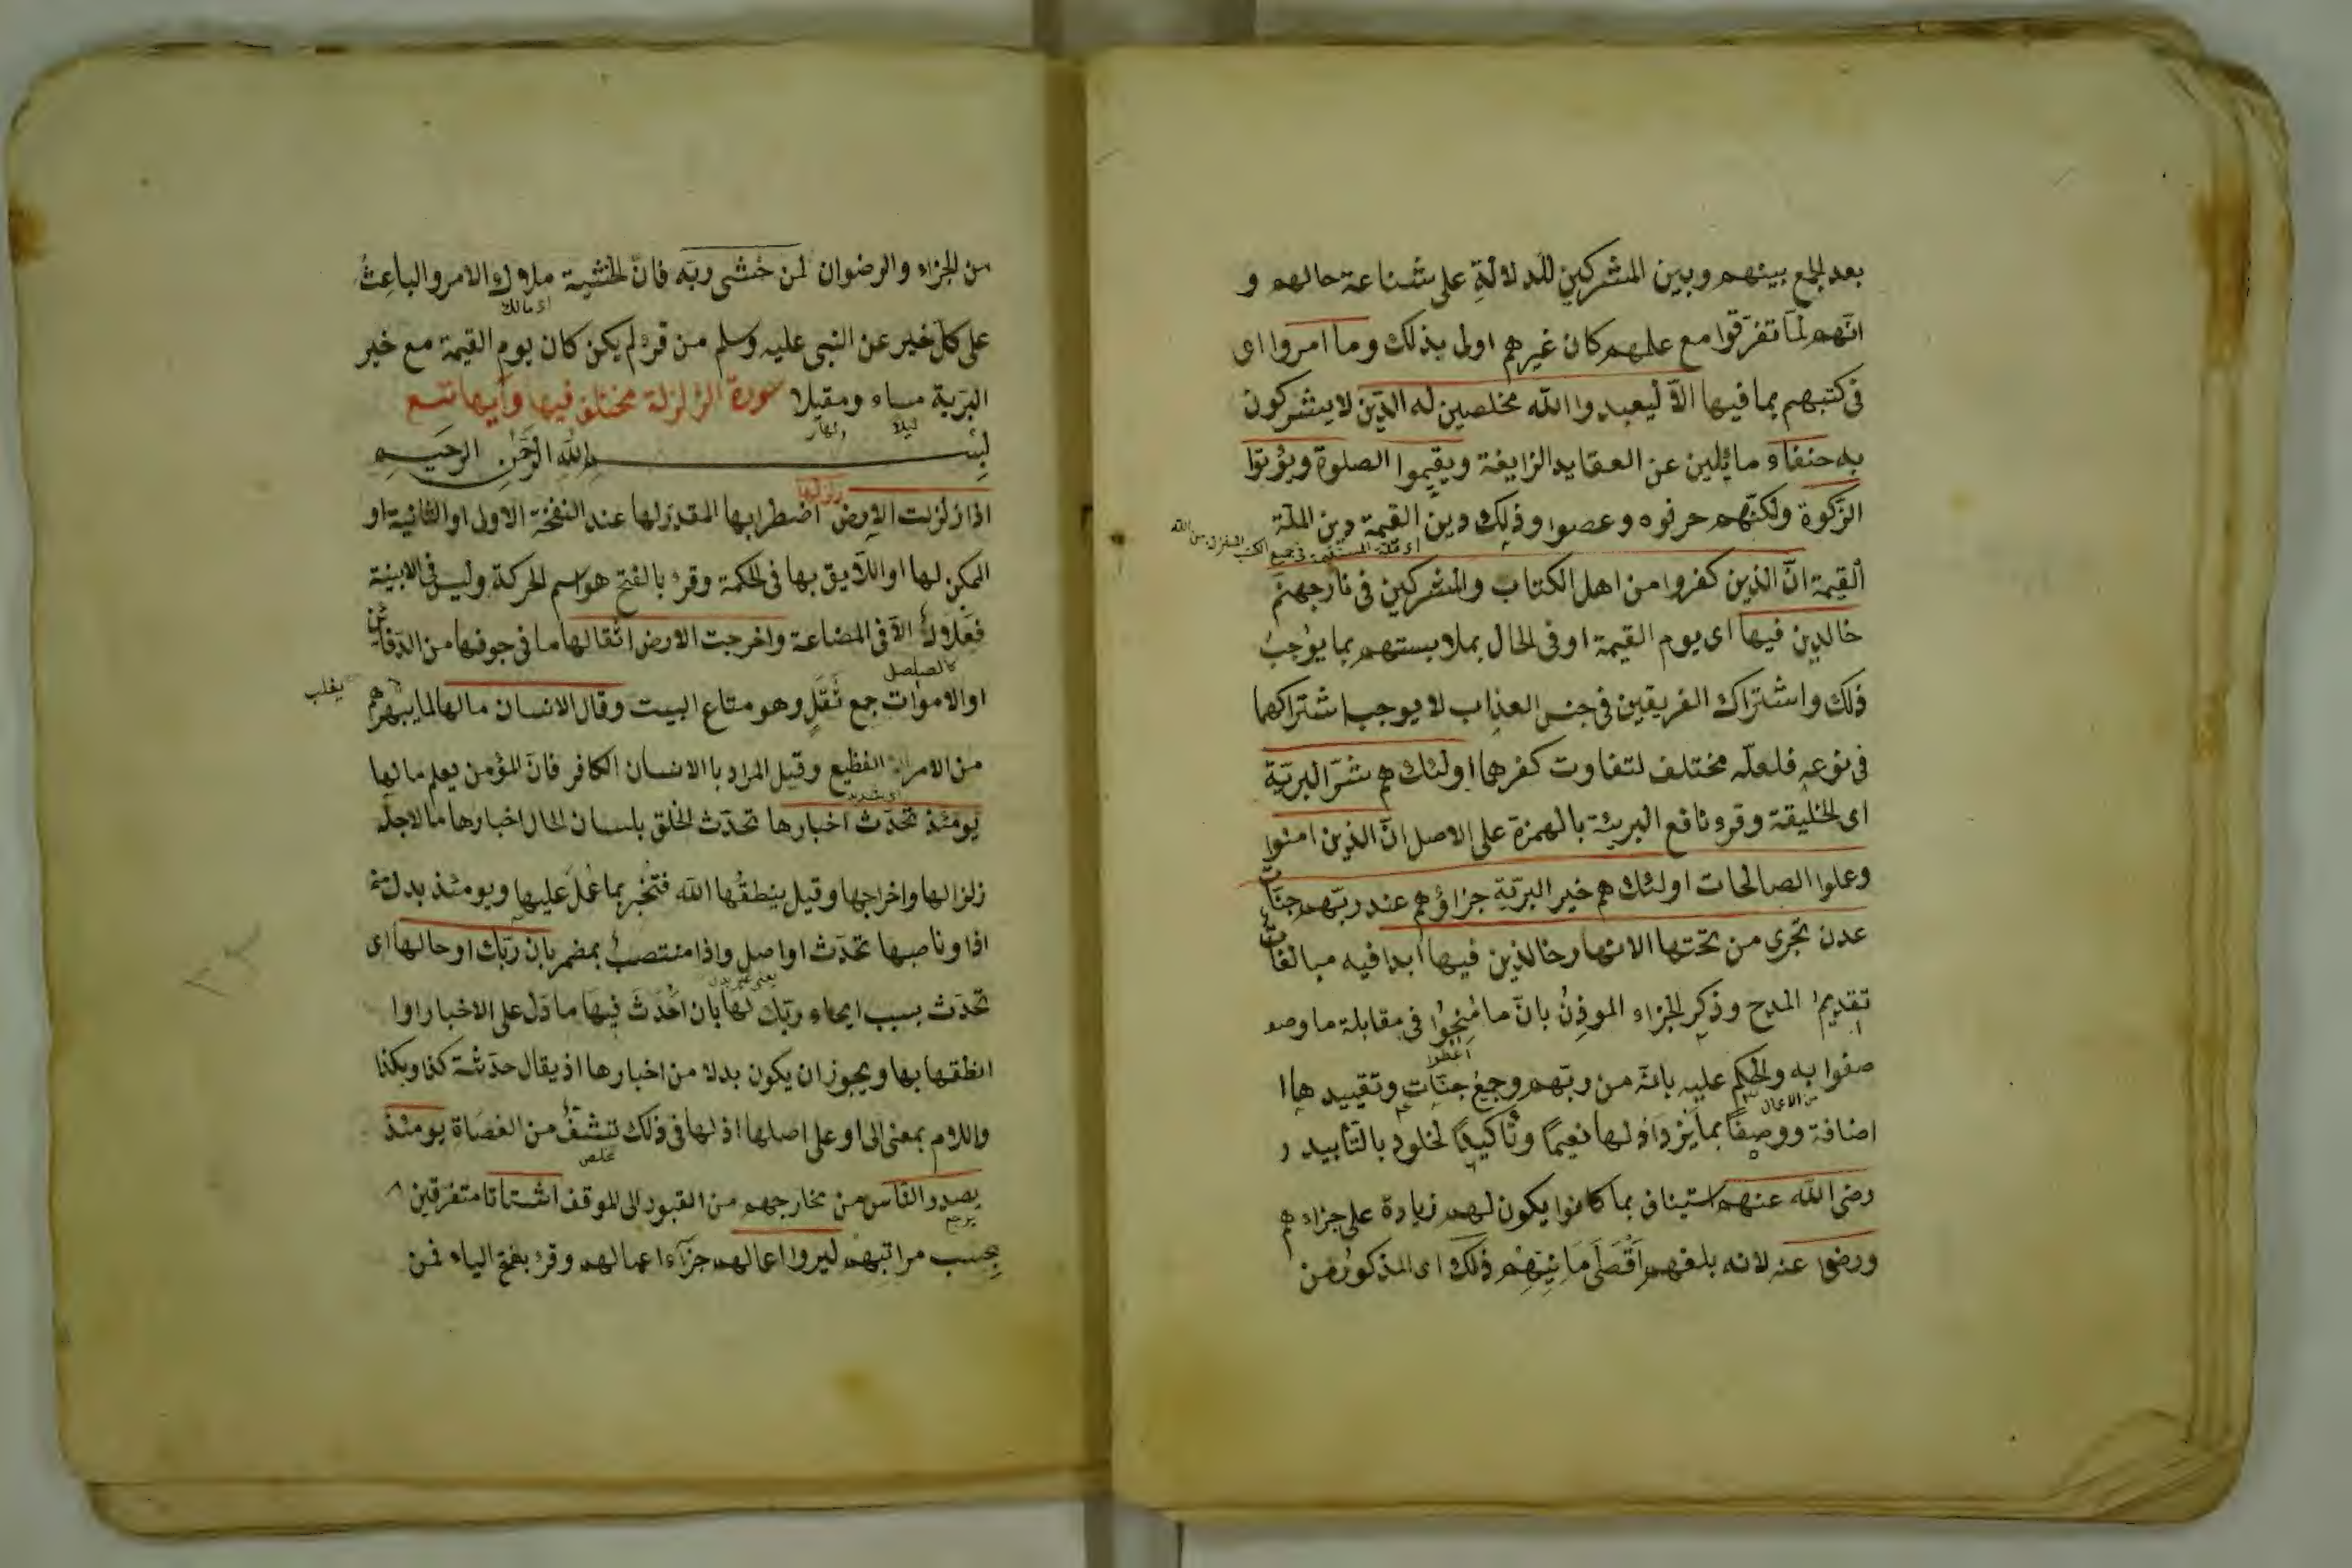 بعد الجمع بينهم وبين المشركين للدلالة على شناعة حالهم و
انهم لما تفرقوا مع علمهم كان غيرهم اولى بذلك وما امروا اى
فى كتبهم بما فيها الا ليعبدوا الله مخلصين له الدين لا يشركون
به حنفاء مائلين عن العقايد الزايغة ويقيموا الصلوة ويؤتوا
الزكوة ولكنهم حرفوه وعصوا وذلك دين القيمة دين الملة
القيمة ان الذين كفروا من اهل الكتاب والمشركين فى نار جهنم
خالدين فيها اى يوم القيمة او فى الحال بملابستهم بما يوجب
ذلك واشتراك الفريقين فى جنس العذاب لا يوجب اشتراكهما
فى نوعه فلعله مختلف لتفاوت كفرهما اولئك هم شر البرية
اى الخليقة وقرء نافع البريئة بالهمزة على الاصل ان الذين امنوا
وعملوا الصالحات اولئك هم خير البرية جزاؤهم عند ربهم جنات
عدن تجرى من تحتها الانهار خالدين فيها ابدا فيه مبالغات
تقديم المدح وذكر الجزاء الموذن بان ما منحوا فى مقابلة ما وصو
اعطوا
صفوا به والحكم عليه بانه من ربهم وجمع جنات وتقييدها ا
من الاعمال
اضافة ووصفا بما يزداد لها نعيما وتأكيد الخلود بالتأبيد ر
رضى الله عنهم استيناف بما كانوا يكون لهم زيادة على جزاءهم
ورضوا عنه لانه بلغهم اقصى امانيهم ذلك اى المذكور من
من الجزاء والرضوان لمن خشى ربه فان الخشية ملاك الامر والباعث
اى مالك
على كل خير عن النبى عليه وسلم من قرء لم يكن كان يوم القيمة مع خير
البرية مساء ومقيلا سورة الزلزلة مختلف فيها وآيها تسع
ليلا ونهارا
بسم الله الرحمن الرحيم
اذا زلزلت الارض زلزالها اضطرابها المقدر لها عند النفخة الاولى او الثانية او
الممكن لها او اللايق بها فى الحكمة وقرء بالفتح هو اسم الحركة وليس فى الابنية
فعلال الا فى المضاعة واخرجت الارض اثقالها ما فى جوفها من الدفائن
كالصلصل
او الاموات جمع ثقل وهو متاع البيت وقال الانسان ما لها لما يبهرهم
يغلب
من الامر الفظيع وقيل المراد بالانسان الكافر فان المؤمن يعلم ما لها
اى شديد
يومئذ تحدث اخبارها تحدث الخلق بلسان الحال اخبارها ما لاجله
زلزالها واخراجها وقيل ينطقها الله فتخبر بما عمل عليها ويومئذ بدل من
اذا وناصبها تحدث او اصل واذا منتصب بمضمر بان ربك اوحى لها اى
يعنى غير بدل
تحدث بسبب ايحاء ربك لها بان احدث فيها ما دل على الاخبار او ا
انطقها بها ويجوز ان يكون بدلا من اخبارها اذ يقال حدثته كذا وبكذا
واللام بمعنى الى او على اصلها اذ لها فى ذلك تشف من العصاة يومئذ
تخلص
يصدر الناس من مخارجهم من القبور الى الموقف اشتاتا متفرقين
يرجع
بحسب مراتبهم ليروا اعمالهم جزاء اعمالهم وقرء بفتح الياء فمن